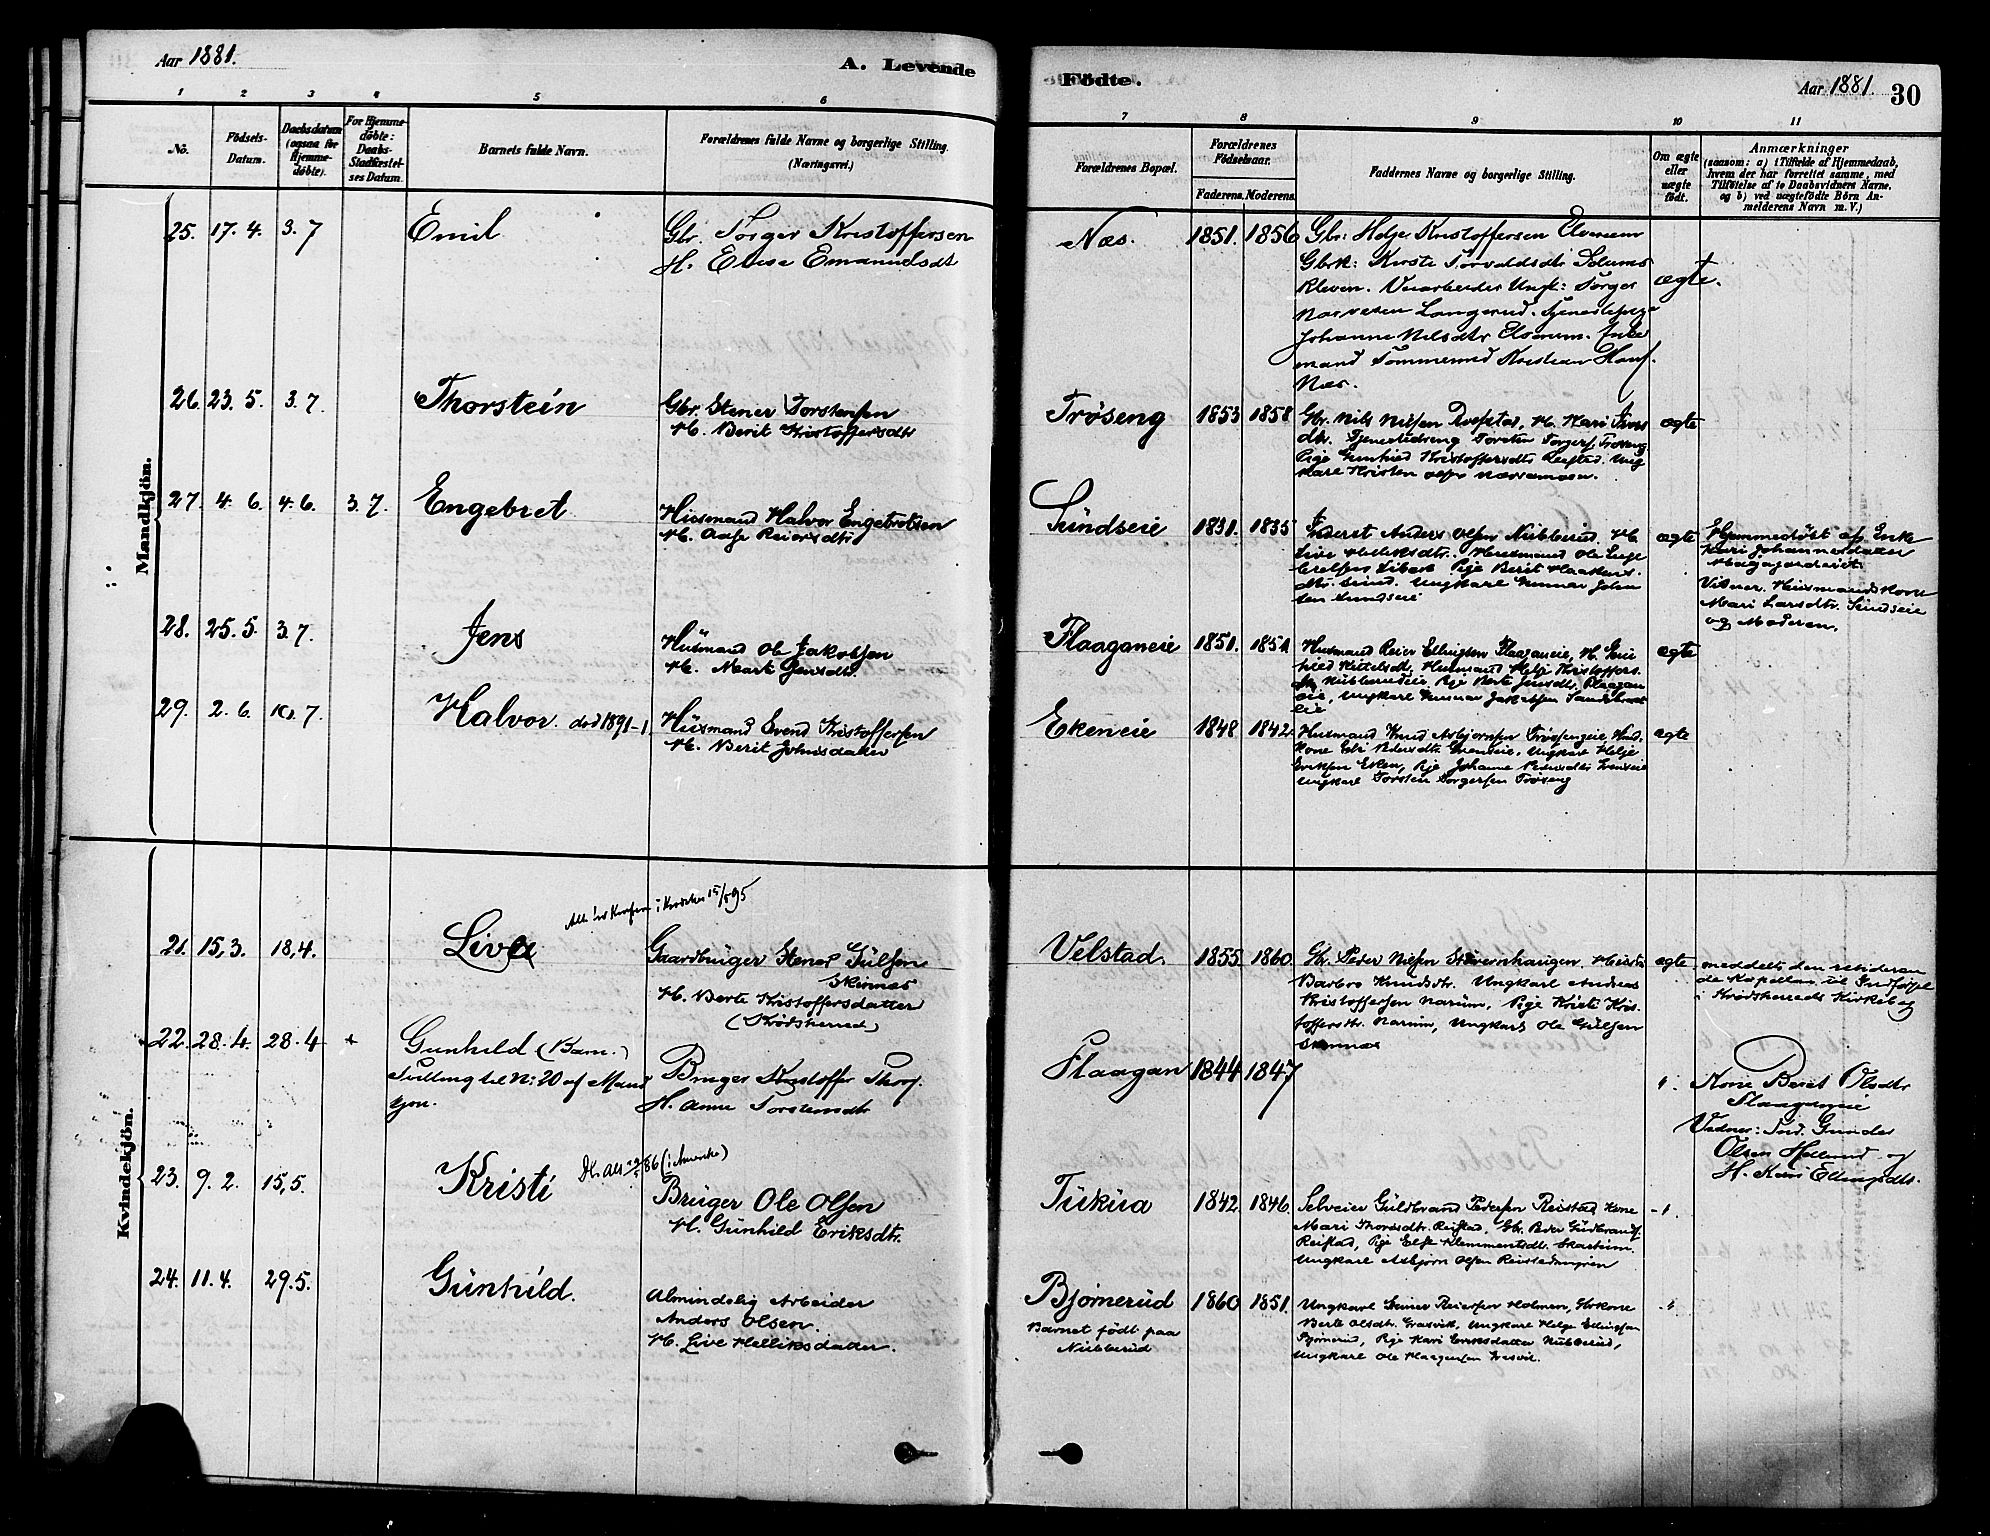 Aar 1881.
A. Levende
Födte.
Aar 1881.
30
1 2 3 4 5 6
7 8 9 10 11
No.
Födsels-
Datum.
Daabsdatum
(ogsaa for
Hjemme-
døbte).
For Hjemme-
døbte:
Daabs-
Stadfæstel-
ses Datum.
Barnets fulde Navn.
Forældrenes fulde Navne og borgerlige Stilling.
(Næringsvei.)
Forældrenes Bopæl.
Forældrenes
Födselsaar.
Faderens. Moderens.
Faddernes Navne og borgerlige Stilling.
Om ægte
eller
uægte
født.
Anmærkninger
(saasom: a) i Tilfælde af Hjemmedaab,
hvem der har forrettet samme, med
Tilføielse af to Daabsvidners Navne.
og b) ved uægtefødte Børn An-
melderens Navn m. V.)
Mandkjön.
25. 17. 4. 3. 7
Emil
Gbr. Torger Kristoffersen
H. Elise Emanuelsdt
Næs.
1851. 1856
Gbr: Helje Kristoffersen Elverum
Gbrk: Kirsti Torvaldsdtr Solums
kleven. Veiarbeider Ungk: Torger
Langerud.
Johanne Nilsdtr Elverum. Enke
mand Tømmermd Kristian Hans.
Næs.
ægte.
26. 23. 5. 3. 7.
Thorstein
Gbr. Stener Torstensen
H. Berit Kristoffersdtr
Trøseng
1853 1858
Gbr. Nils Nilsen H. Mari
dtr. Torsten Torgers. Trøseng
Pige Gunhild Kristoffersdtr Ung
karl Kristen
ægte
27. 4. 6. 4. 6. 3. 7.
Engebret
Husmand Halvor Engebretsen
H. Aase Reiersdtr.
Sundseie
1831. 1835
Inderst Anders Olsen Nubberud. H.
Live Helliksdtr. Husmand Ole Enge
bretsen Pige Berit Haakens
dtr. Sund. Ungkarl Gunnar Johan
sen Sundseie
ægte
Hjemmedøbt af Enke
Kari Johannesdatter
Hagagardeiet.
Vidner. Husmandskone
Mari Larsdtr. Sundseie
og Moderen.
28. 25. 5. 3. 7.
Jens
Husmand Ole Jakobsen
H. Marit Jensdtr.
Flaaganeie
1851. 1851
Husmand Reier Ellingsen Flaaganeie, H. Gun
hild Husmand Helje Kristoffers.
Nubberudeie Pige Berte Jensdtr. Flaagan
eie, Ungkarl Gunnar Jakobsen
eie
ægte
29. 2. 6. 10. 7.
Halvor. død 1891-1
Husmand Svend Kristoffersen
H. Berit Johnsdatter
Ekeneie
1848 1842.
Husmand Knud Asbjørnsen Trøsengeie Husd.
kone Pedersdtr. Ungkarl Helje
Eriksen Eken, Pige Johanne Pedersdtr
Ungkarl Torsten Torgersen Trøseng
ægte
Kvindekjön.
21. 15. 3. 18. 4.
Live
Att. i Krødsher. 15/5 95
Gaardbruger Stener Gulsen
Skinnes
H. Berte Kristoffersdatter
(Krødsherred)
Velstad.
1855. 1860.
Gbr. Peder Nilsen Stavernhaugen. Hustru
Barbro Knudsdtr. Ungkarl Andreas
Kristoffersen Narum, Pige Kristi Kris
toffersdtr. Narum, Ungkarl Ole Gulsen
Skinnes
ægte
meddelt den resideren
de Kapellan til Indførsel
i Krødsherreds Kirkebog
22. 28. 4. 28. 4
Gunhild (Barn.)
Tvilling til No: 20 af Mand
kjøn.
Bruger Kristoffer Thors.
H. Anne Torstensdtr
Flaagan
1844 1847
Kone Berit Olsdtr
Flaaganeie
Vidner: Ind. Gunder
Olsen og
H. Kari Ellingsdtr.
23. 9. 2. 15. 5.
Kristi
Db. Att. 29/5 86 (Amerika)
Bruger Ole Olsen
H. Gunhild Eriksdtr.
Tukua
1842 1846.
Selveier Guldbrand Pedersen Reistad Kone
Mari Thorsdtr. Reistad, Gbr. Peder Guldbrands.
Reistad, Pige Else Klemmentsdtr. Skartum.
Ungkarl Asbjørn Olsen
24. 11. 4. 29. 5.
Gunhild.
Almindelig Arbeider
Anders Olsen.
H. Live Helliksdatter.
Bjørnerud
Barnet født paa
Nubberud
1860 1851.
Ungkarl Steiner Reiersen Holmen, Gbrkone
Berte Olsdtr. Grasvik, Ungkarl Helge Ellingsen
Bjørnerud, Pige Kari Eriksdatter Nubberud,
Ungkarl Ole Haagensen Grasvik.